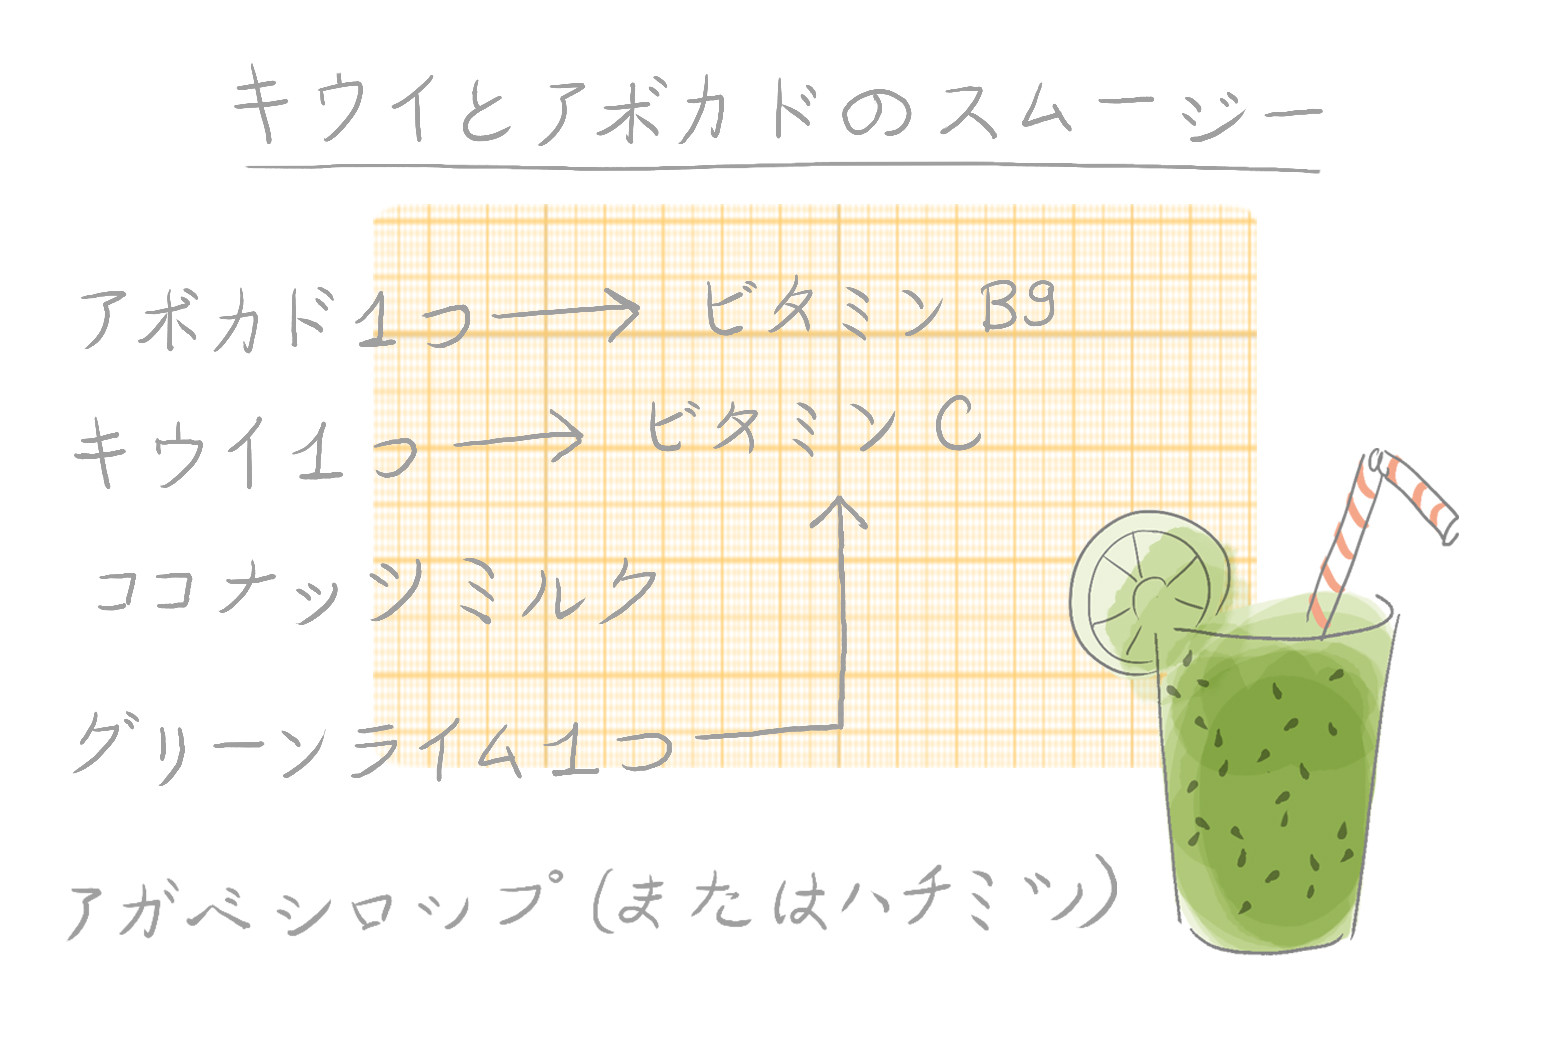 キウイとアボカドのスムージー
アボカド1つ → ビタミン B9
キウイ1つ → ビタミン C
ココナッツミルク
グリーンライム1つ
アガベシロップ (またはハチミツ)